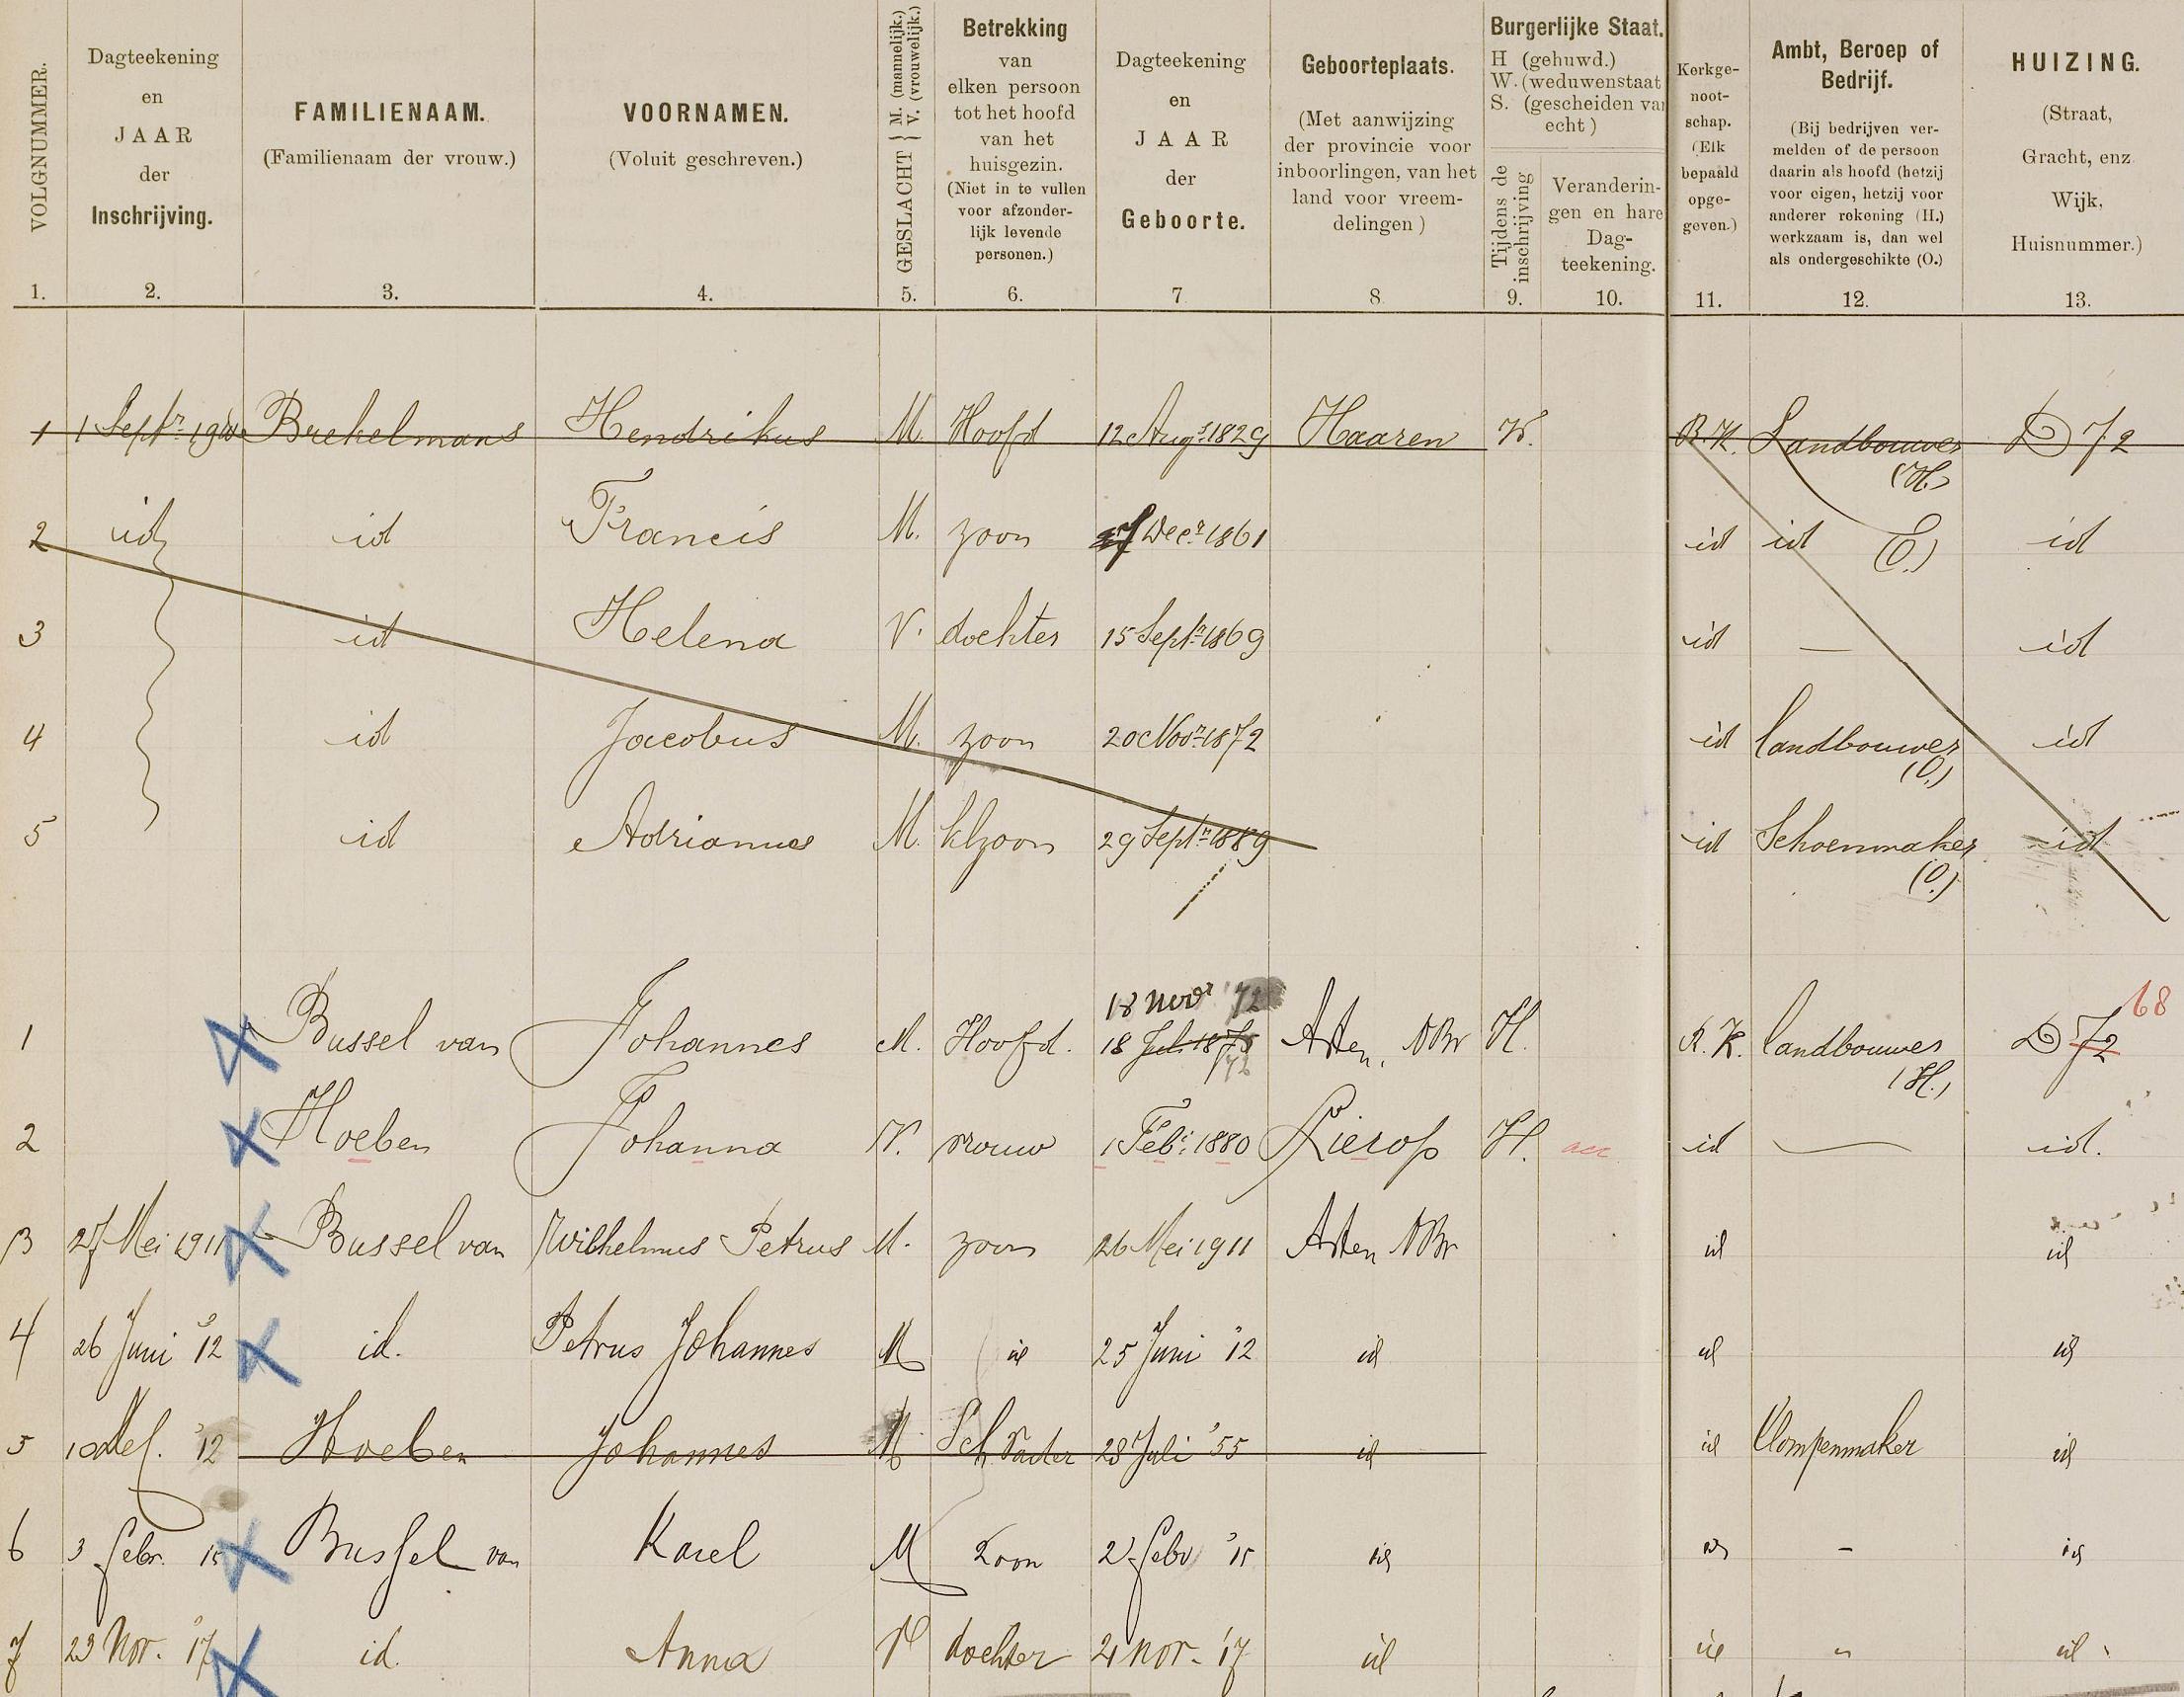 VOLGNUMMER.
1.
Dagteekening
en
JAAR
der
Inschrijving.
2.
FAMILIENAAM.
(Familienaam der vrouw.)
3.
VOORNAMEN.
(Voluit geschreven.)
4.
GESLACHT { M. (mannelijk.) V. (vrouwelijk.)
5.
Betrekking
van
elken persoon
tot het hoofd
van het
huisgezin.
(Niet in te vullen
voor afzonder-
lijk levende
personen.)
6.
Dagteekening
en
JAAR
der
Geboorte.
7
Geboorteplaats.
(Met aanwijzing
der provincie voor
inboorlingen, van het
land voor vreem-
delingen)
8
Burgerlijke Staat.
H (gehuwd.)
W. (weduwenstaat
S. (gescheiden van
echt)
Tijdens de
inschrijving
9.
Veranderin-
gen en hare
Dag-
teekening.
10.
Kerkge-
noot-
schap.
(Elk
bepaald
opge-
geven.)
11.
Ambt, Beroep of
Bedrijf.
(Bij bedrijven ver-
melden of de persoon
daarin als hoofd (hetzij
voor eigen, hetzij voor
anderer rekening (H.)
werkzaam is, dan wel
als ondergeschikte (O.)
12.
HUIZING.
(Straat,
Gracht, enz
Wijk,
Huisnummer.)
13.
1 1 Septr. Brekelmans Hendrikus M. Hoofd 12 Augs 1829 Haaren W. R.K. Landbouwer (H.) D 72
2 id id Francis M. zoon Decr 1861 id id id
3 id Helena V. dochter 15 Septr 1869 id — id
4 id Jacobus M. zoon 20 Novr 1872 id landbouwer (O.) id
5 id Adrianus M. klzoon 29 Septr 1889 id Schoenmaker (O.) id
18 novr '72 68
1 Bussel van Johannes M. Hoofd. 18 Asten, NBr H. R.K. landbouwer (H.) D 72
2 Hoeben Johanna V. vrouw 1 Feb: 1880 Lierop H. acc id — id.
3 27 Mei 1911 Bussel van Wilhelmus Petrus M. zoon 26 Mei 1911 Asten NBr id id
4 26 Juni '12 id. Petrus Johannes M id 25 Juni '12 id id id
5 10 '12 Hoeben Johannes M Sch vader 28 Juli '55 id id Klompenmaker id
6 3 febr. 15 Bussel van Karel M Zoon 2 febr '15 id id – id
7 23 Nov. '17 id. Anna V dochter 21 nov. '17 id id " id